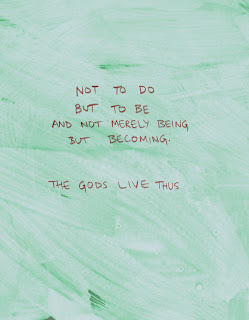 NOT TO DO
BUT TO BE
AND NOT MERELY BEING
BUT BECOMING.
THE GODS LIVE THUS